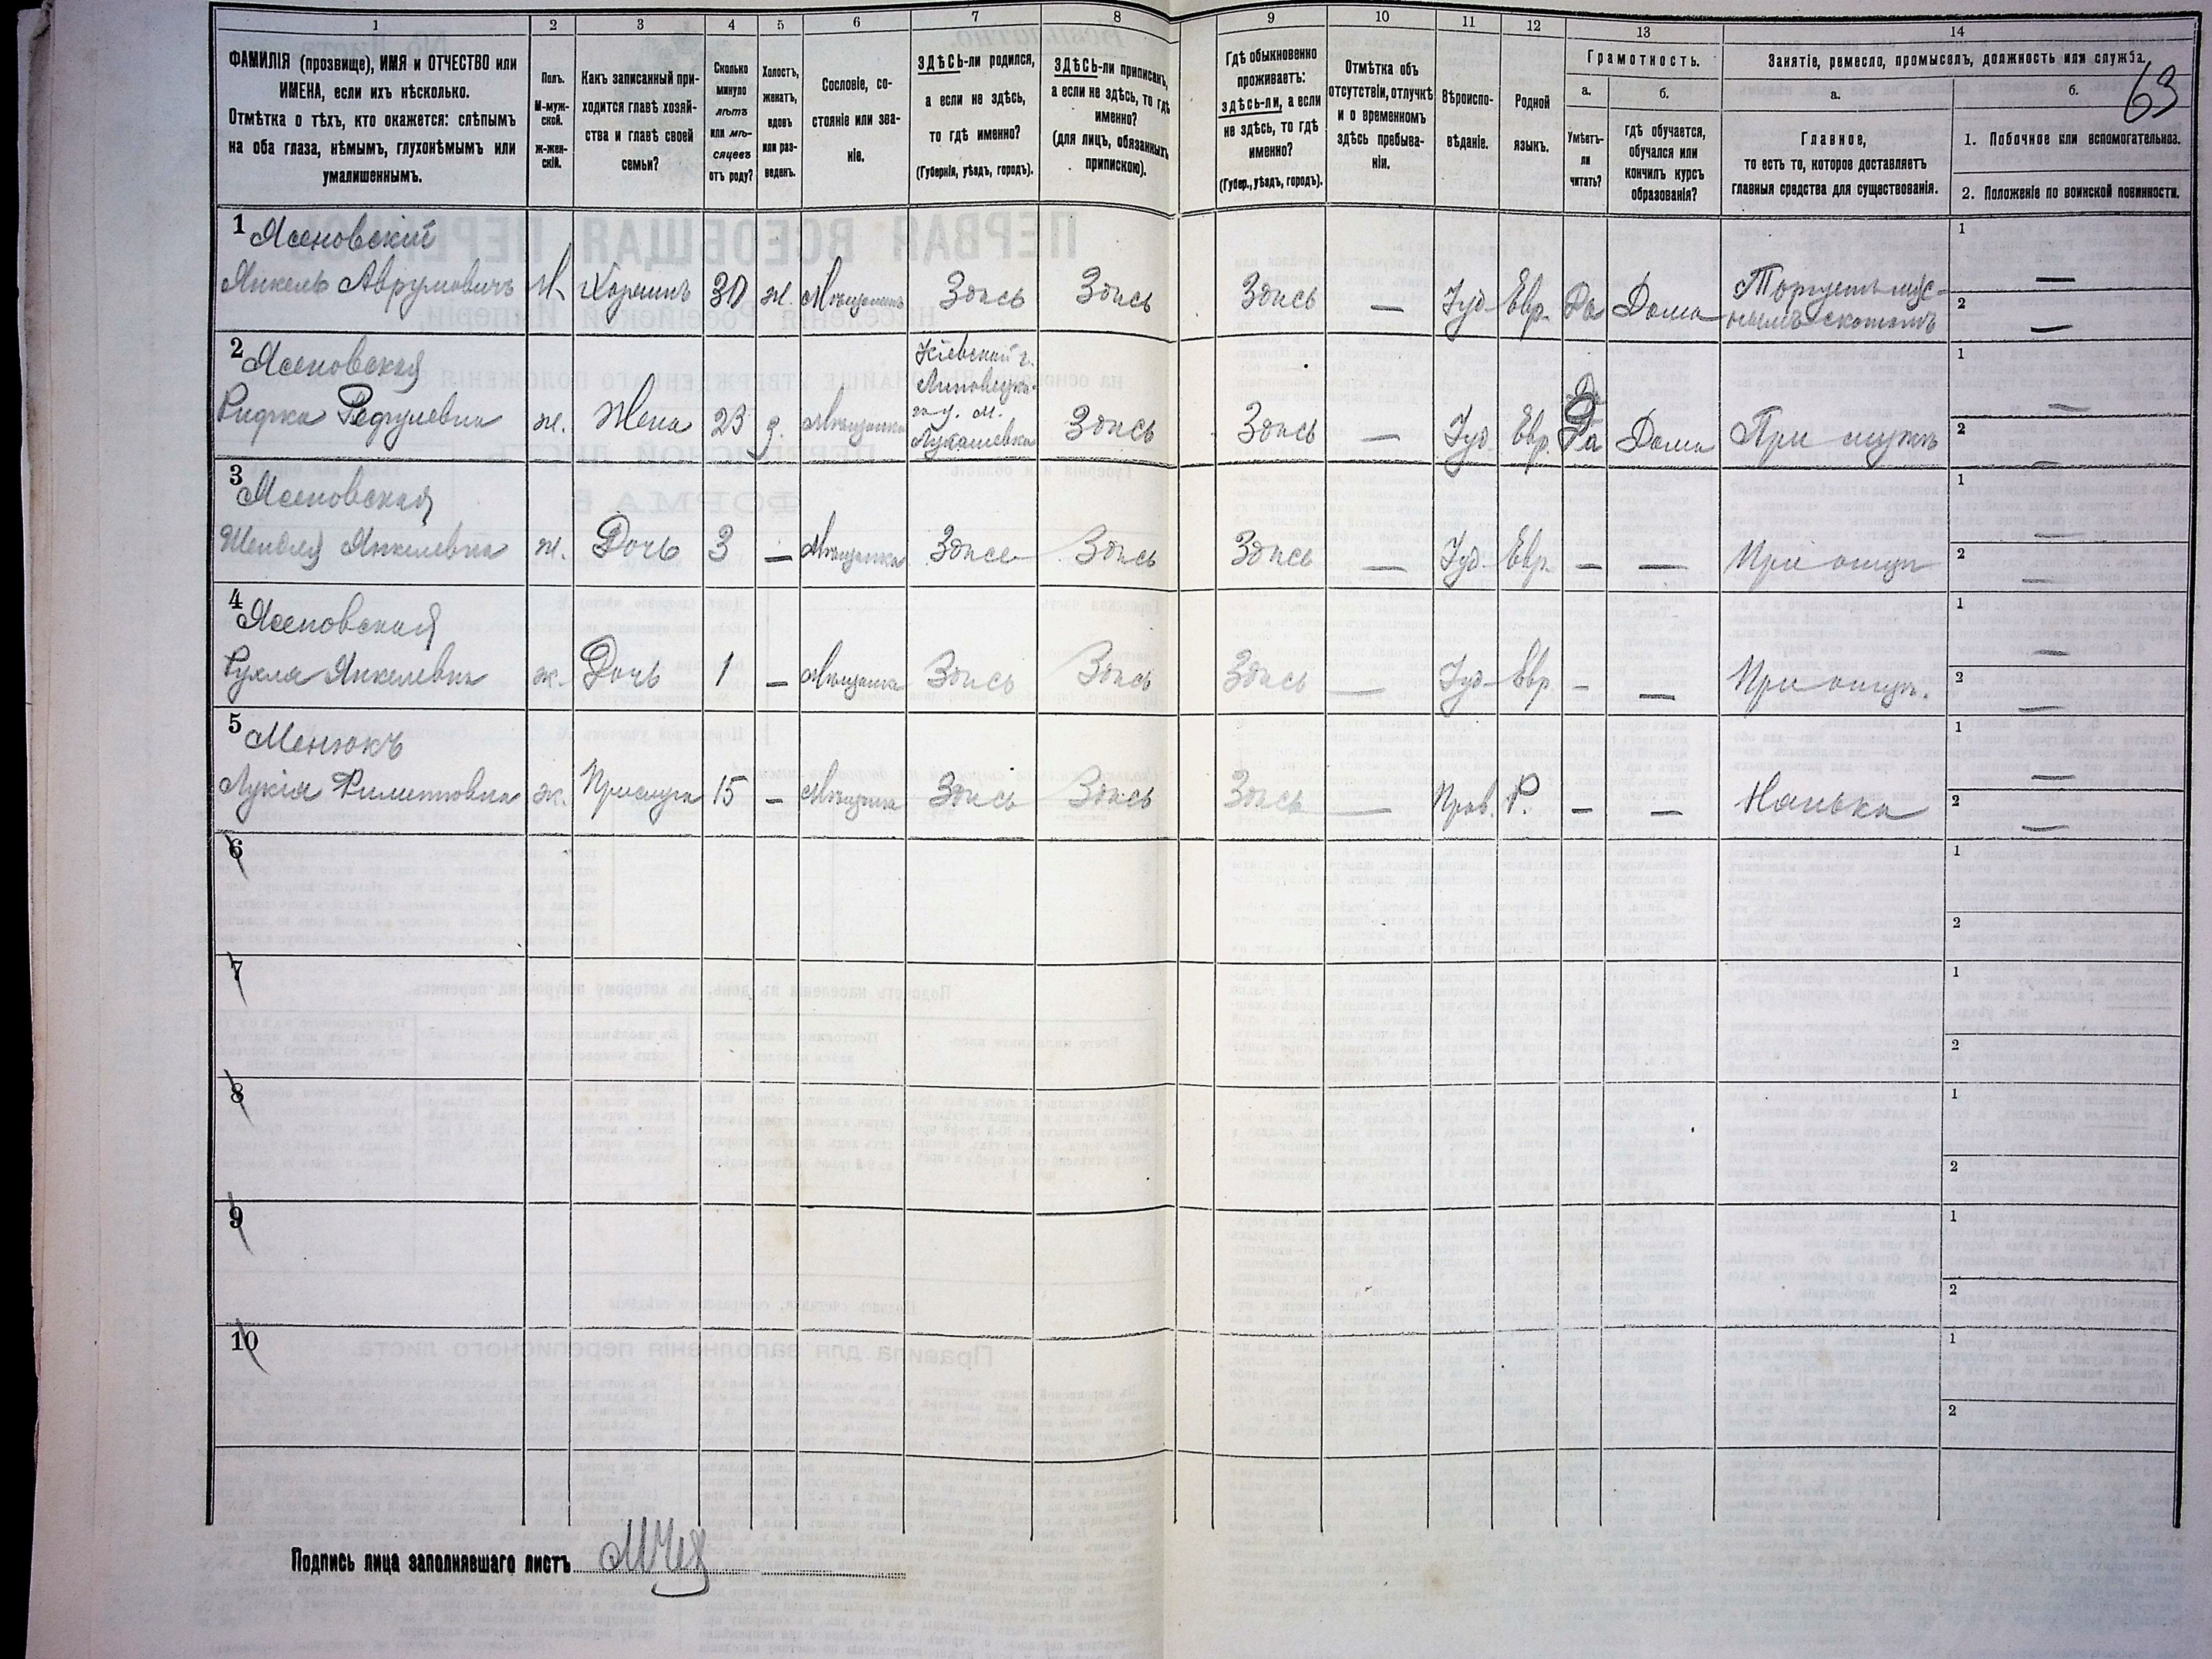 1 2 3 4 5 6 7 8 9 10 11 12 13 14
63
ФАМИЛІЯ (прозвище), ИМЯ и ОТЧЕСТВО или
ИМЕНА, если ихъ нѣсколько.
Отмѣтка о тѣхъ, кто окажется: слѣпымъ
на оба глаза, нѣмымъ, глухонѣмымъ или
умалишеннымъ.
Полъ.
М-муж-
ской.
ж-жен-
скій.
Какъ записанный при-
ходится главѣ хозяй-
ства и главѣ своей
семьи?
Сколько
минуло
лѣтъ
или мѣ-
сяцевъ
отъ роду?
Холостъ,
женатъ,
вдовъ
или раз-
веденъ.
Сословіе, со-
стояніе или зва-
ніе.
ЗДѢСЬ-ли родился,
а если не здѣсь,
то гдѣ именно?
(Губернія, уѣздъ, городъ).
ЗДѢСЬ-ли приписанъ,
а если не здѣсь, то гдѣ
именно?
(для лицъ, обязанныхъ
припискою).
Гдѣ обыкновенно
проживаетъ:
здѣсь-ли, а если
не здѣсь, то гдѣ
именно?
(Губер., уѣздъ, городъ).
Отмѣтка объ
отсутствіи, отлучкѣ
и о временномъ
здѣсь пребыва-
ніи.
Вѣроиспо-
вѣданіе.
Родной
языкъ.
Грамотность.
а.
Умѣетъ-
ли
читать?
б.
Гдѣ обучается,
обучался или
кончилъ курсъ
образованія?
Занятіе, ремесло, промыселъ, должность или служба.
а.
Главное,
то есть то, которое доставляетъ
главныя средства для существованія.
б.
1. Побочное или вспомогательное.
2. Положеніе по воинской повинности.
1 Ясеновскій
Янкель Аврумовичъ М Хозяинъ 30 ж. Мѣщанинъ Здѣсь Здѣсь Здѣсь — Іуд. Евр. Да Дома
Торгуетъ мяс-
нымъ скотомъ
1 —
2 —
2 Ясеновская
Рифка Рефулевна ж. Жена 23 з. Мѣщанка
Кіевской г.
Липовецка-
го у. м.
Лукашевка
Здѣсь Здѣсь — Іуд. Евр. Да Дома При мужѣ
1 —
2 —
3 Ясеновская
Шейдля Янкелевна ж. Дочь 3 — Мѣщанка Здѣсь Здѣсь Здѣсь — Іуд. Евр. — — При отцѣ
1 —
2 —
4 Ясеновская
Рухля Янкелевна ж. Дочь 1 — Мѣщанка Здѣсь Здѣсь Здѣсь — Іуд. Евр. — — При отцѣ.
1 —
2 —
5 Мензюкъ
Лукія Филиповна ж. Прислуга 15 — Мѣщанка Здѣсь Здѣсь Здѣсь — Прав. Р. — — Нянька
1 —
2 —
6
1
2
7
1
2
8
1
2
9
1
2
10
1
2
Подпись лица заполнявшаго листъ